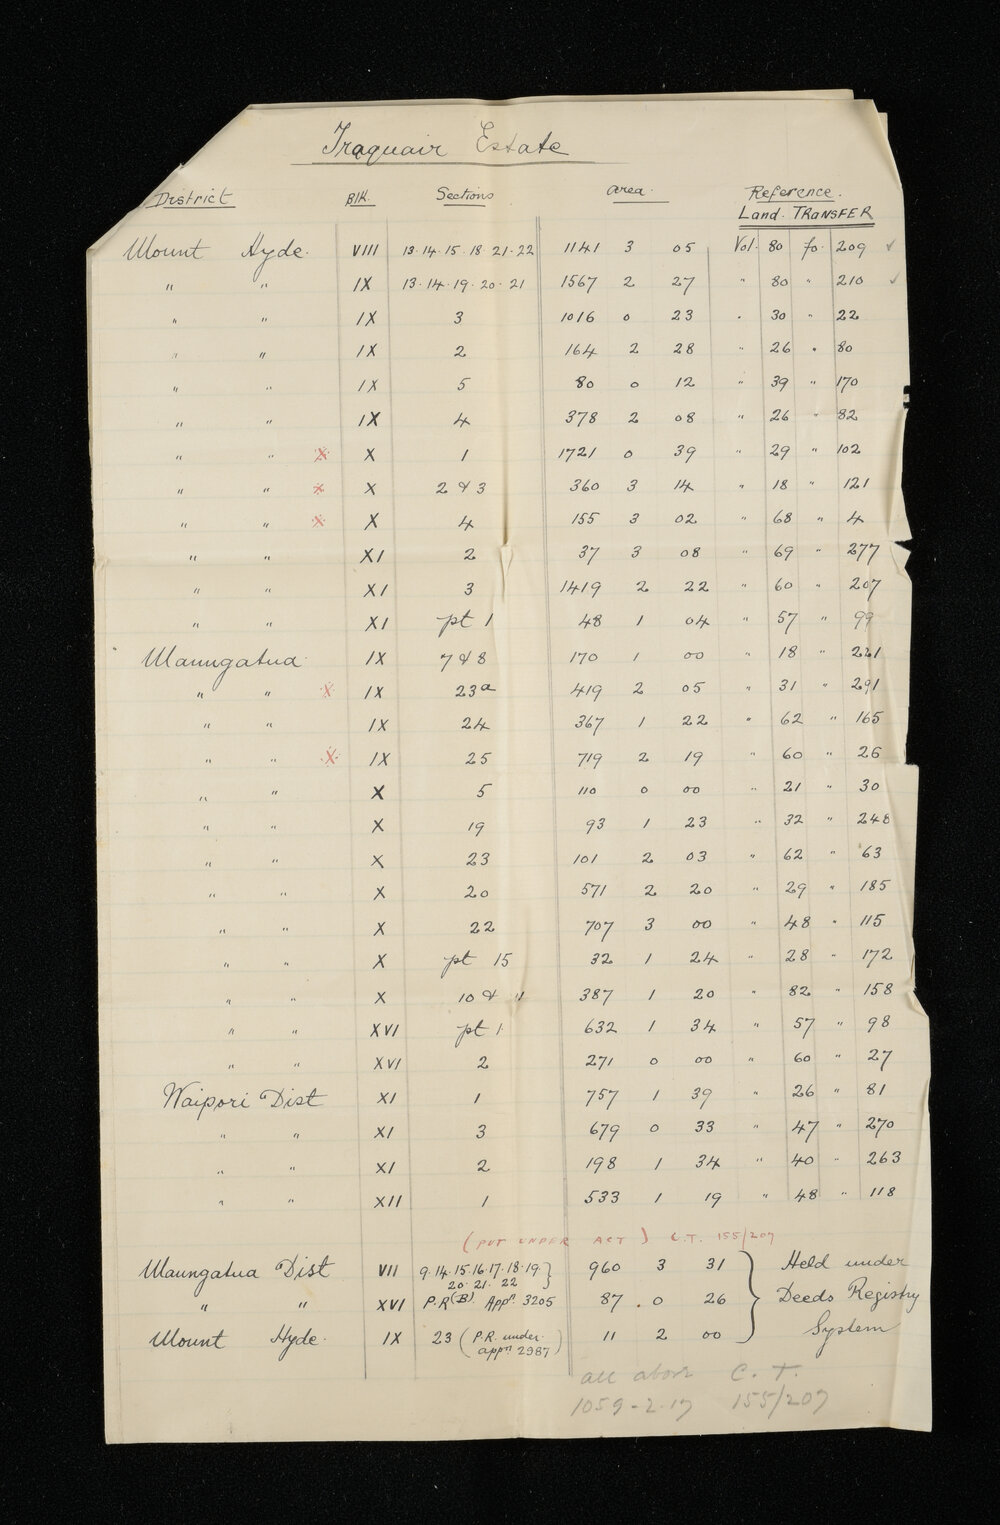 Traquair Estate
District Blk. Sections area. Reference.
Land. TRANSFER
Mount Hyde. VIII 13·14·15·18·21·22 1141 3 05 Vol. 80 fo. 209 ✓
" " IX 13·14·19·20·21 1567 2 27 " 80 " 210 ✓
" " IX 3 1016 0 23 " 30 " 22
" " IX 2 164 2 28 " 26 " 80
" " IX 5 80 0 12 " 39 " 170
" " IX 4 378 2 08 " 26 " 82
" " X X 1 1721 0 39 " 29 " 102
" " X X 2 & 3 360 3 14 " 18 " 121
" " X X 4 155 3 02 " 68 " 4
" " XI 2 37 3 08 " 69 " 277
" " XI 3 1419 2 22 " 60 " 207
" " XI pt 1 48 1 04 " 57 " 99
Maungatua IX 7 & 8 170 1 00 " 18 " 221
" " X IX 23a 419 2 05 " 31 " 291
" " IX 24 367 1 22 " 62 " 165
" " X IX 25 719 2 19 " 60 " 26
" " X 5 110 0 00 " 21 " 30
" " X 19 93 1 23 " 32 " 248
" " X 23 101 2 03 " 62 " 63
" " X 20 571 2 20 " 29 " 185
" " X 22 707 3 00 " 48 " 115
" " X pt 15 32 1 24 " 28 " 172
" " X 10 & 11 387 1 20 " 82 " 158
" " XVI pt 1 632 1 34 " 57 " 98
" " XVI 2 271 0 00 " 60 " 27
Waipori Dist XI 1 757 1 39 " 26 " 81
" " XI 3 679 0 33 " 47 " 270
" " XI 2 198 1 34 " 40 " 263
" " XII 1 533 1 19 " 48 " 118
(PUT UNDER ACT) C.T. 155/207
Maungatua Dist VII 9·14·15·16·17·18·19 960 3 31 Held under
20·21·22
" " XVI P.R(B) Appn. 3205 87 . 0 26 Deeds Registry
Mount Hyde. IX 23 (P.R. under 11 2 00 System
appn 2987)
all above C. T.
1059-2-17 155/207